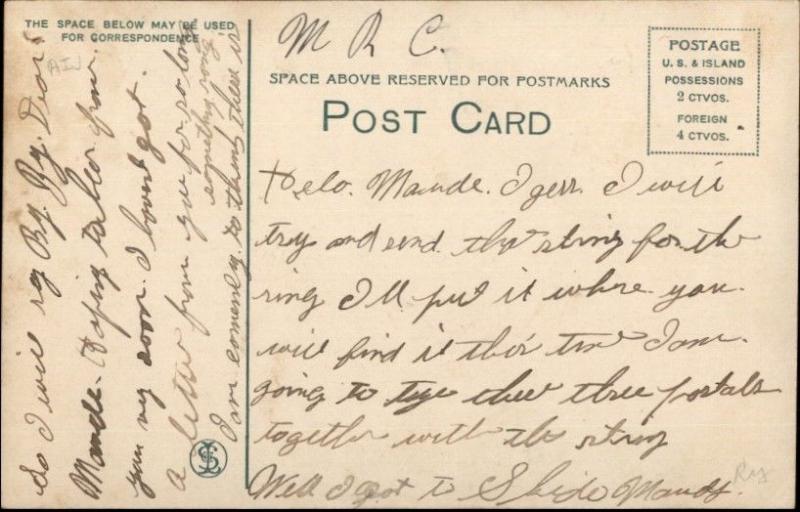 THE SPACE BELOW MAY BE USED
FOR CORRESPONDENCE
M R C.
SPACE ABOVE RESERVED FOR POSTMARKS
POST CARD
POSTAGE
U. S. & ISLAND
POSSESSIONS
2 CTVOS.
FOREIGN
4 CTVOS.
Helo. Maude. I gess. I will
try and send. the string for the
ring I'll put it where you.
will find it tho'
I am.
going to tye thes three postals
together with the string
Well I got to Skido Maudy.
So I will say By. By. Dear.
Maude. Hoping to hear from.
you very soon. I havent got.
a letter from you for so long
I am comencing to think there is
something rong